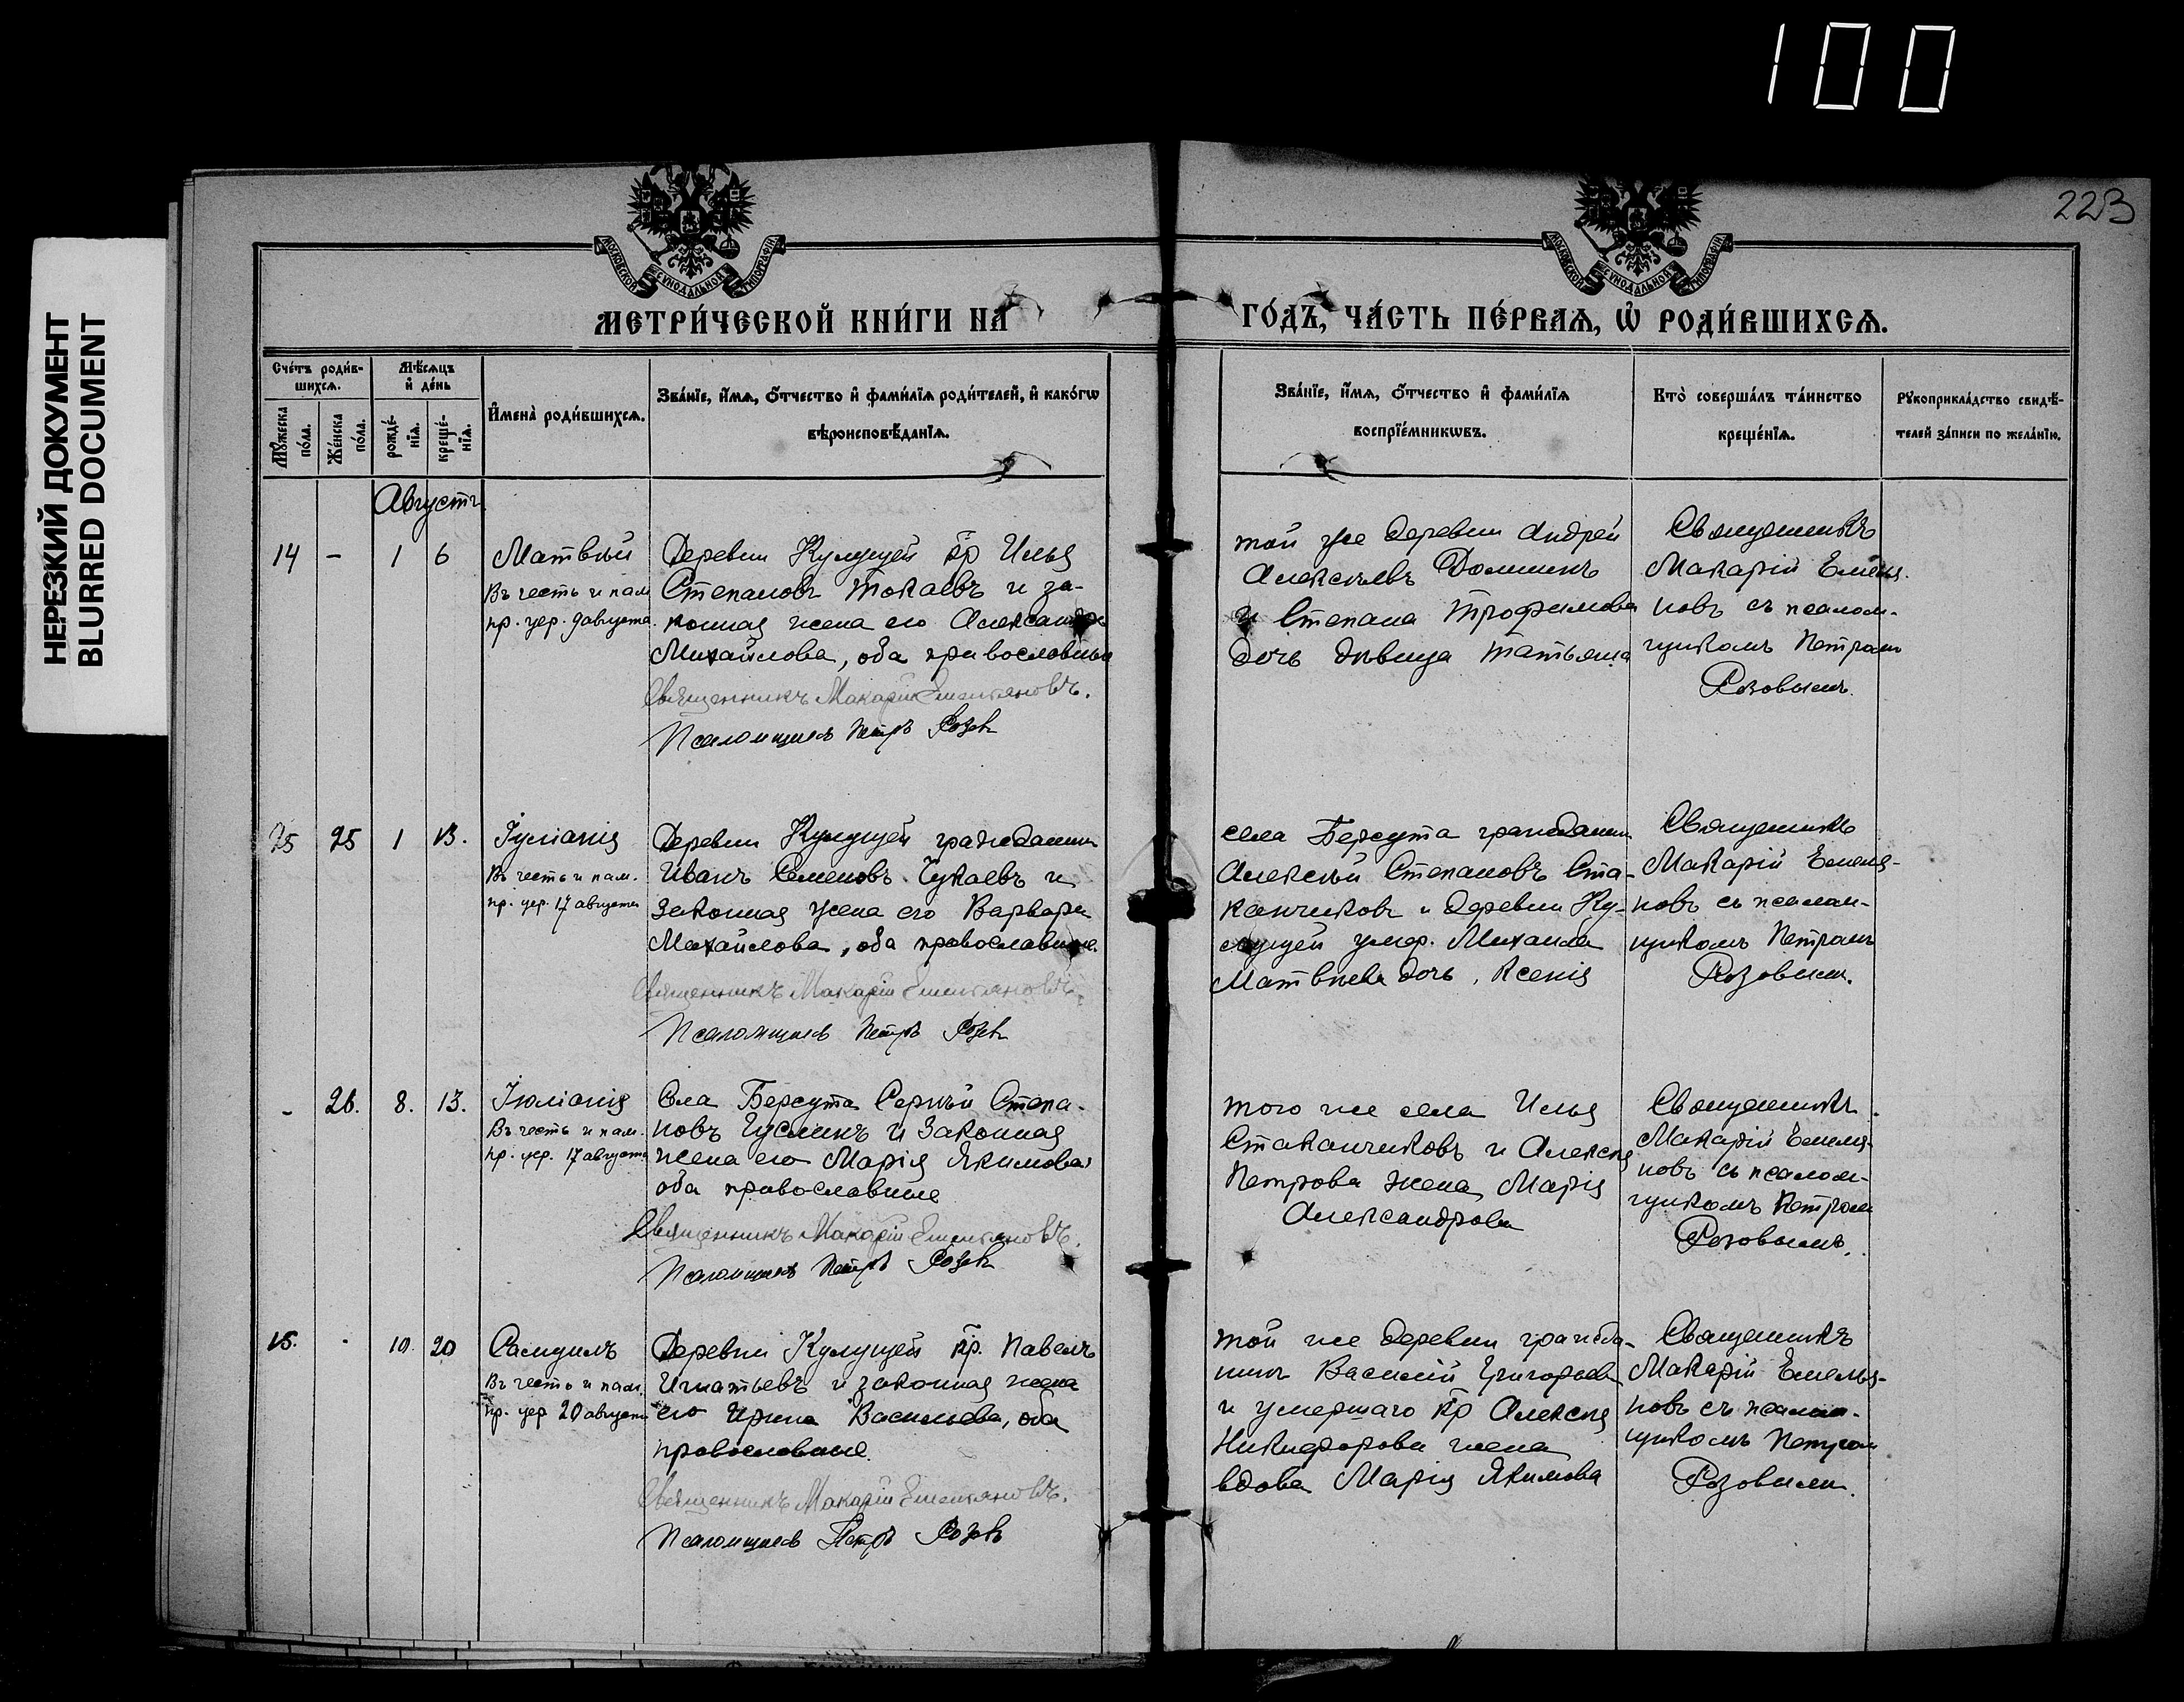 100
НЕРЕЗКИЙ ДОКУМЕНТ
BLURRED DOCUMENT
223
МОСКОВСКОЙ СУНОДАЛЬНОЙ ТИПОГРАФІИ
МОСКОВСКОЙ СУНОДАЛЬНОЙ ТИПОГРАФІИ
МЕТРИ́ЧЕСКОЙ КНИ́ГИ НА
ГО́ДЪ, ЧА́СТЬ ПЕ́РВАѦ, Ѡ҆ РОДИ́ВШИХСѦ.
Сче́тъ роди́в-
шихсѧ.
Мꙋ́жеска по́ла.
Же́нска по́ла.
Мѣ́сѧцъ
и҆ де́нь
рожде́-
нїѧ.
креще́-
нїѧ.
И҆мена̀ роди́вшихсѧ.
Зва́нїе, и҆́мѧ, ѻ҆́тчество и҆ фами́лїѧ роди́телей, и҆ како́гѡ
вѣроисповѣ́данїѧ.
Зва́нїе, и҆́мѧ, ѻ҆́тчество и҆ фами́лїѧ
воспрїе́мникѡвъ.
Кто̀ соверша́лъ та́инство
креще́нїѧ.
Рꙋкоприкла́дство свидѣ́-
телей за́писи по жела́нїю.
Августъ
14 - 1 6
Матвѣй
Въ честь и пам
пр. цер. 9 августа.
Деревни Кулущей кр Илья
Степановъ Токаевъ и за-
конная жена его Александра
Михайлова, оба православные
Священникъ Макарій Емельяновъ.
Псаломщикъ Петръ Розов
той же деревни Андрей
Алексѣевъ Доминъ
и Степана Трофимова
дочь дѣвица Татьяна
Священникъ
Макарій Емелья.
новъ съ псалом-
щикомъ Петромъ
Розовымъ.
25 25 1 13.
Іуліанія
Въ честь и пам.
пр. цер. 17 августа
Деревни Кулущей гражданинъ
Иванъ Семеновъ Чукаевъ и
законная жена его Варвара
Михайлова, оба православные.
Священникъ Макарій Емельяновъ.
Псаломщикъ Петръ Розов
села Берсута гражданин
Алексѣй Степановъ Ста-
канчиковъ и деревни Ку-
лущей умер. Михаила
Матвѣева дочь, Ксенія
Священникъ
Макарій Емелья-
новъ съ псалом-
щикомъ Петромъ
Розовым.
- 26. 8. 13.
Іюліанія
Въ честь и пам.
пр. цер. 17 августа
Села Берсута Сергѣй Степа-
новъ Гуслинъ и законная
жена его Марія Якимова
оба православные
Священникъ Макарій Емельяновъ.
Псаломщикъ Петръ Розов
того же села Илья
Стаканчиковъ и Алексѣя
Петрова жена Марія
Александрова
Священникъ
Макарій Емелья-
новъ съ псалом-
щикомъ Петром
Розовымъ.
15. - 10. 20
Самуилъ
Въ честь и пам.
пр. цер 20 августа
Деревни Кулущей кр. Павелъ
Игнатьевъ и законная жена
его Ирина Васильева, оба
православные.
Священникъ Макарій Емельяновъ.
Псаломщикъ Петръ Розовъ
той же деревни гражда-
нинъ Василій Григорьев
и умершаго кр Алексѣя
Никифорова жена
вдова Марія Якимова
Священникъ
Макарій Емелья-
новъ съ псалом-
щикомъ Петром
Розовым.